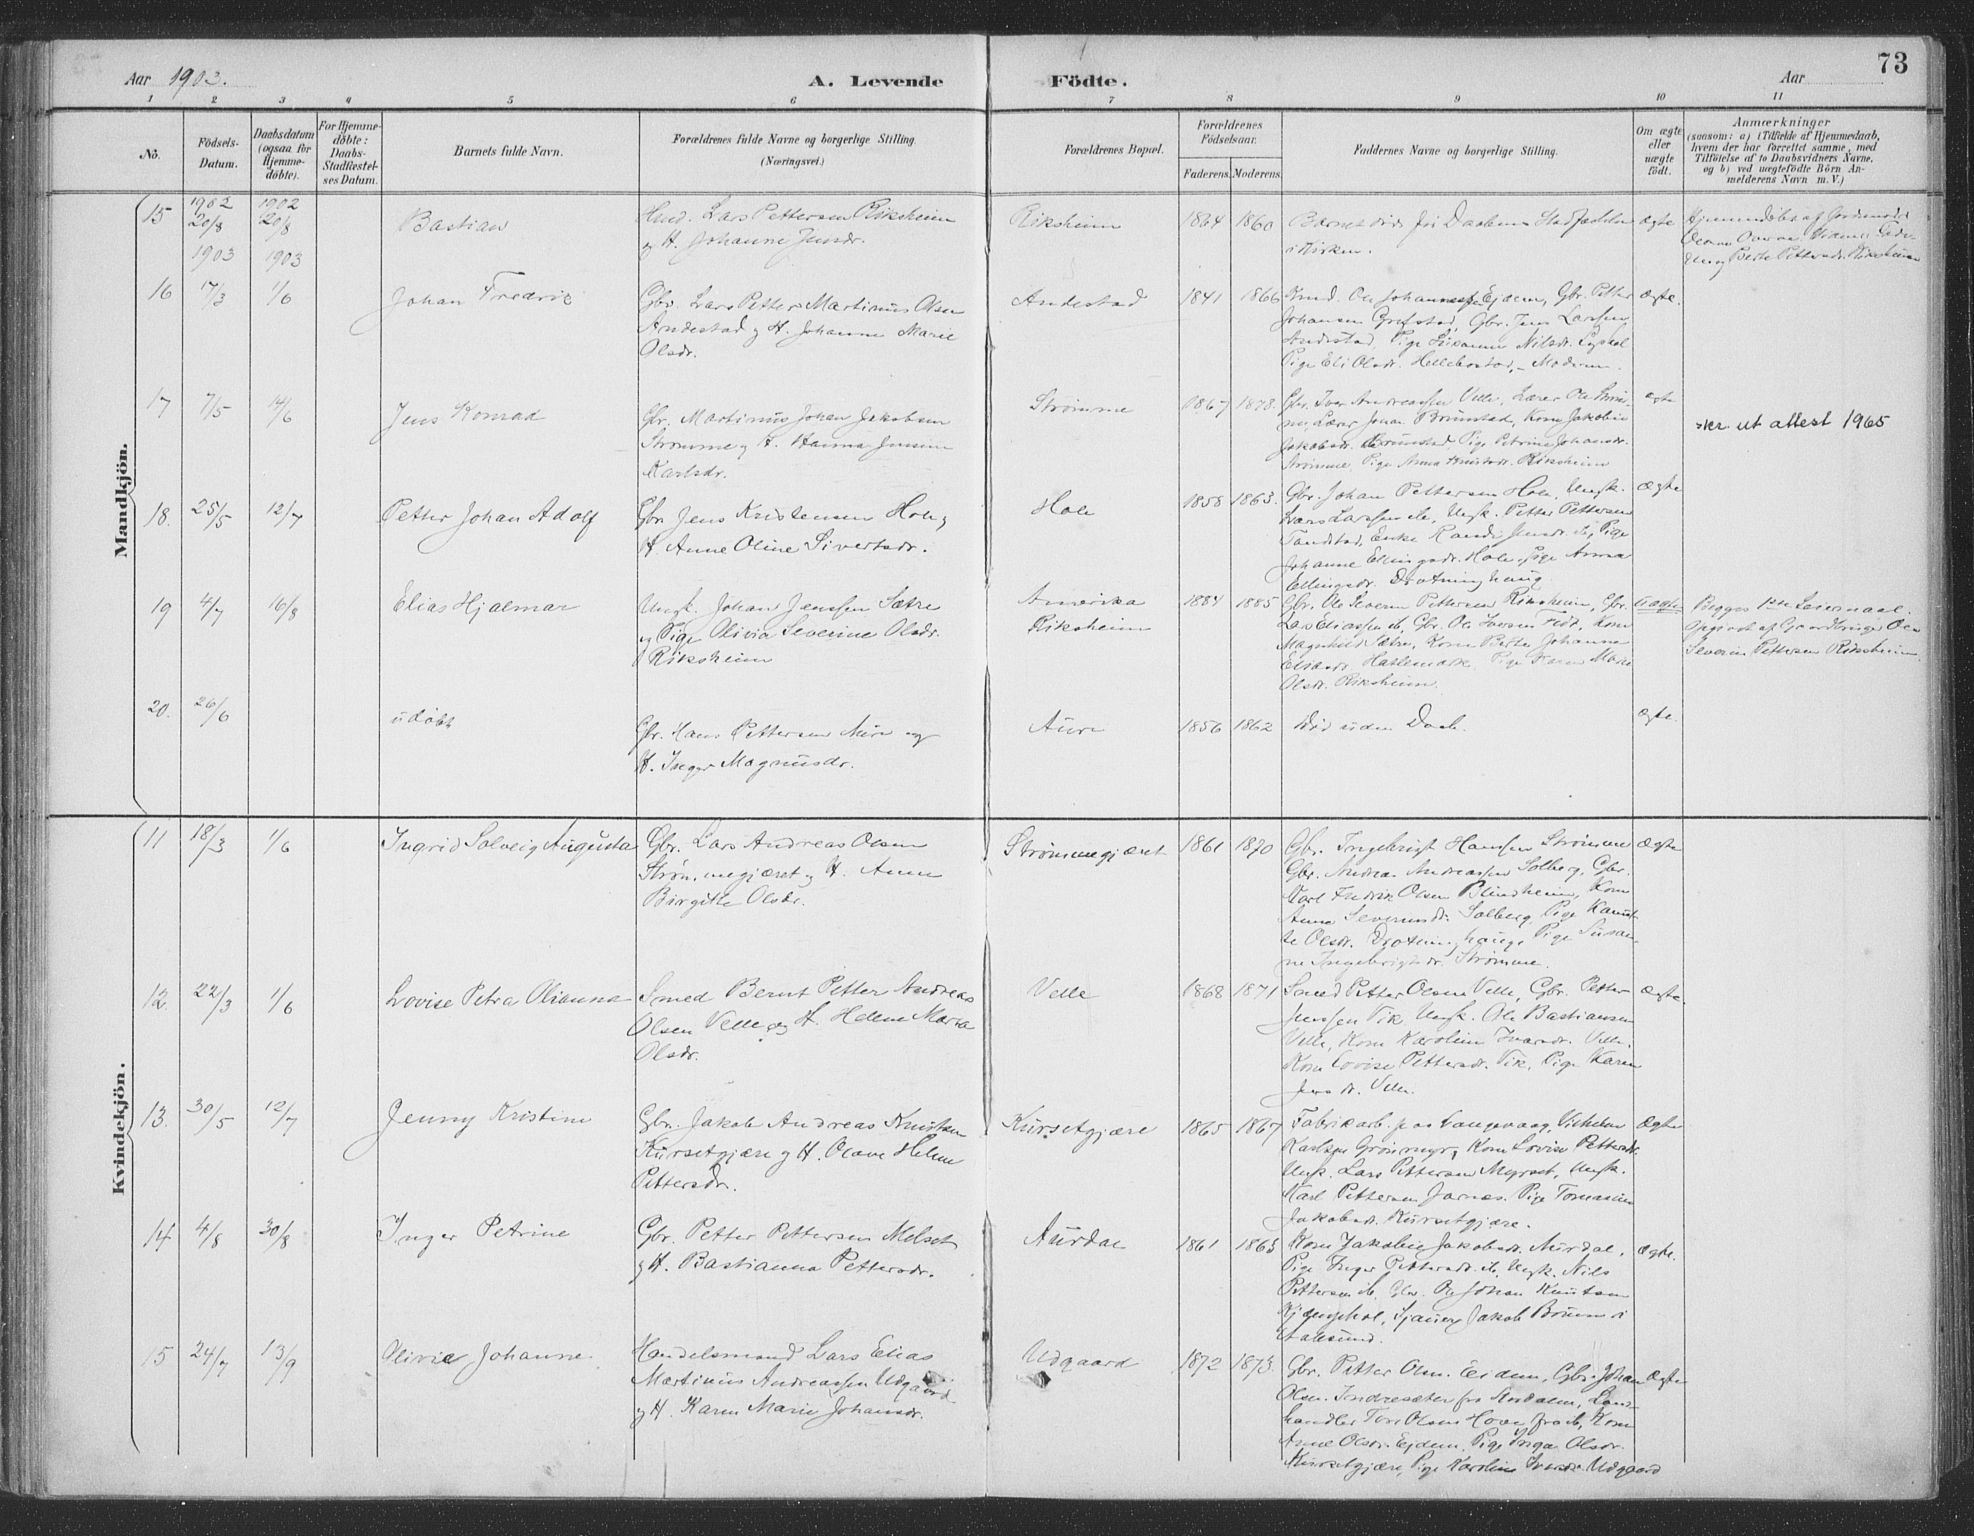 73
Aar 1903.
A. Levende
Födte.
Aar
1 2 3 4 5 6 7 8 9 10 11
No.
Födsels-
Datum.
Daabsdatum
(ogsaa for
Hjemme-
döbte).
For Hjemme-
döbte:
Daabs-
Stadfæstel-
ses Datum.
Barnets fulde Navn.
Forældrenes fulde Navne og borgerlige Stilling
(Næringsvei.)
Forældrenes Bopæl.
Forældrenes
Födselsaar.
Faderens.
Moderens.
Faddernes Navne og borgerlige Stilling.
Om ægte
eller
uægte
født.
Anmærkninger
(saasom: a) i Tilfælde af Hjemmedaab,
hvem der har forrettet samme, med
Tilföielse af to Daabsvidners Navne,
og b) ved uægtefödte Börn An-
melderens Navn m. V.)
Mandkjön.
15
1902
20/8
1902
20/8
Bastian
Lars Pettersen Riksheim
og H. Johanne Jensdr.
Riksheim
1864
1860
Barnet død før Daabens Stadfæstelse
i Kirken.
ægte
Berte Pettersdr. Riksheim
1903
1903
16
17/3
1/6
Johan Fredrik
Gbr. Lars Petter Martinus Olsen
Andestad og H. Johanne Marie
Olsdr.
Andestad
1841
1866
Ole Johannessen Ejdem, Gbr. Petter
Johansen Grefstad, Gbr. Jens Larssen
Andestad, Pige Susanne Nilsdr.
Pige Eli Olsdr. Hellebostad, - Moderen.
ægte.
17
7/5
14/6
Jens Konrad
Gbr. Martinus Johan Jakobsen
Strømme og H. Hanna Jensine
Karlsdr.
Strømme
1867
1878.
Gbr. Iver Andreassen Velle, Lærer Ole
Lærer Johan Brunstad, Kone Jakobine
Jakobsdr. Brunstad Pige Petrine Johansdr.
Strømme, Pige Anna Riksheim
ægte
skr. ut attest 1965
18.
25/5
12/7
Petter Johan Adolf
Gbr. Jens Kristensen Hole og
H. Anne Oline Sivertsdr.
Hole
1858
1863.
Gbr. Johan Pettersen Hole, Ungk.
Lars Larssen ib., Ungk. Petter Pettersen
Tandstad, Enke Randi Jensdr. ib., Pige
Johanne Ellingsdr. Hole, Pige Anna
Ellingsdr. Drotninghaug
ægte
19
4/7
16/8
Elias Hjalmar
Ungk. Johan Jenssen Sætre
og Pige Olivia Severine Olsdr.
Riksheim
Amerika
Riksheim
1884
1885
Gbr. Ole Severin Pettersen Riksheim, Gbr.
Lars Eliassen ib, Gbr. Ole Iversen
Magnhild Sætre, Kone Berte Johanne
Eliasdr. Hatlemark, Pige Karen Marie
Olsdr. Riksheim.
uægte
Begges 1ste Leiermaal.
Opgivet af Gaardbruger Ole
Severin Pettersen Riksheim.
20.
26/6
udøbt
Gbr. Hans Pettersen Aure og
H. Inger Magnusdr.
Aure
1856
1862
Død uden Daab.
ægte.
Kvindekjön.
11
18/3
1/6
Ingrid Solveig Augusta
Gbr. Lars Andreas Olsen
Strømmegjæret og H. Anne
Birgitte Olsdr.
Strømmegjæret
1861
1870
Gbr. Ingebrigt Hansen Strømme
Gbr. Andreas Andreassen Solberg, Gbr.
Karl Fredrik Olsen Blindheim, Kone
Anne Severinsdr. Solberg, Pige
Olsdr. Drotninghaug, Pige Susan-
ne Ingebrigtsdr. Strømme.
ægte
12.
22/3
1/6
Lovise Petra Olianna
Smed Bernt Petter Andreas
Olsen Velle og H. Helene Maria
Olsdr.
Velle
1868
1871
Smed Petter Olsen Velle, Gbr. Petter
Jenssen Vik, Ungk. Ole Bastiansen
Velle, Kone Karoline Ivarsdr. Velle.
Kone Lovise Pettersdr. Vik, Pige Karen
Jensdr. Velle.
ægte.
13.
30/5
12/7
Jenny Kristine
Gbr. Jakob Andreas Knutsen
Kursetgjære og H. Olave Helene
Pettersdr.
Kursetgjære
1865
1867
Fabrikarb. paa Langevaag, Vilhelm
Karlsen Grønmyr, Kone Lovise Pettersdr.
Ungk. Lars Pettersen Myrset, Ungk.
Karl Pettersen Jarnes. Pige Tomasine
Jakobsdr. Kursetgjære.
ægte
14
4/8
30/8
Inger Petrine
Gbr. Petter Pettersen Melset
og H. Bastianna Pettersdr.
Aurdal
1861
1863
Kone Jakobie Jakobsdr. Aurdal,
Pige Inger Pettersdr. ib., Ungk. Nils
Pettersen ib., Gbr. Ole Johan Knutsen
Jakob Brunn i
Aalesund.
ægte.
15
24/7
13/9
Olivie Johanne
Handelsmand Lars Elias
Martinus Andreassen Udgaard
og H. Karen Marie Johansdr.
Udgaard
1872
1873.
Gbr. Petter Olsen Ejdem, Gbr. Johan
Olsen Indresæter fra Land-
handler Tore Olsen Hove fra ib, Kone
Anne Olsdr. Ejdem, Pige Inga Olsdr.
Kursetgjære, Pige Karoline Udgaard
ægte